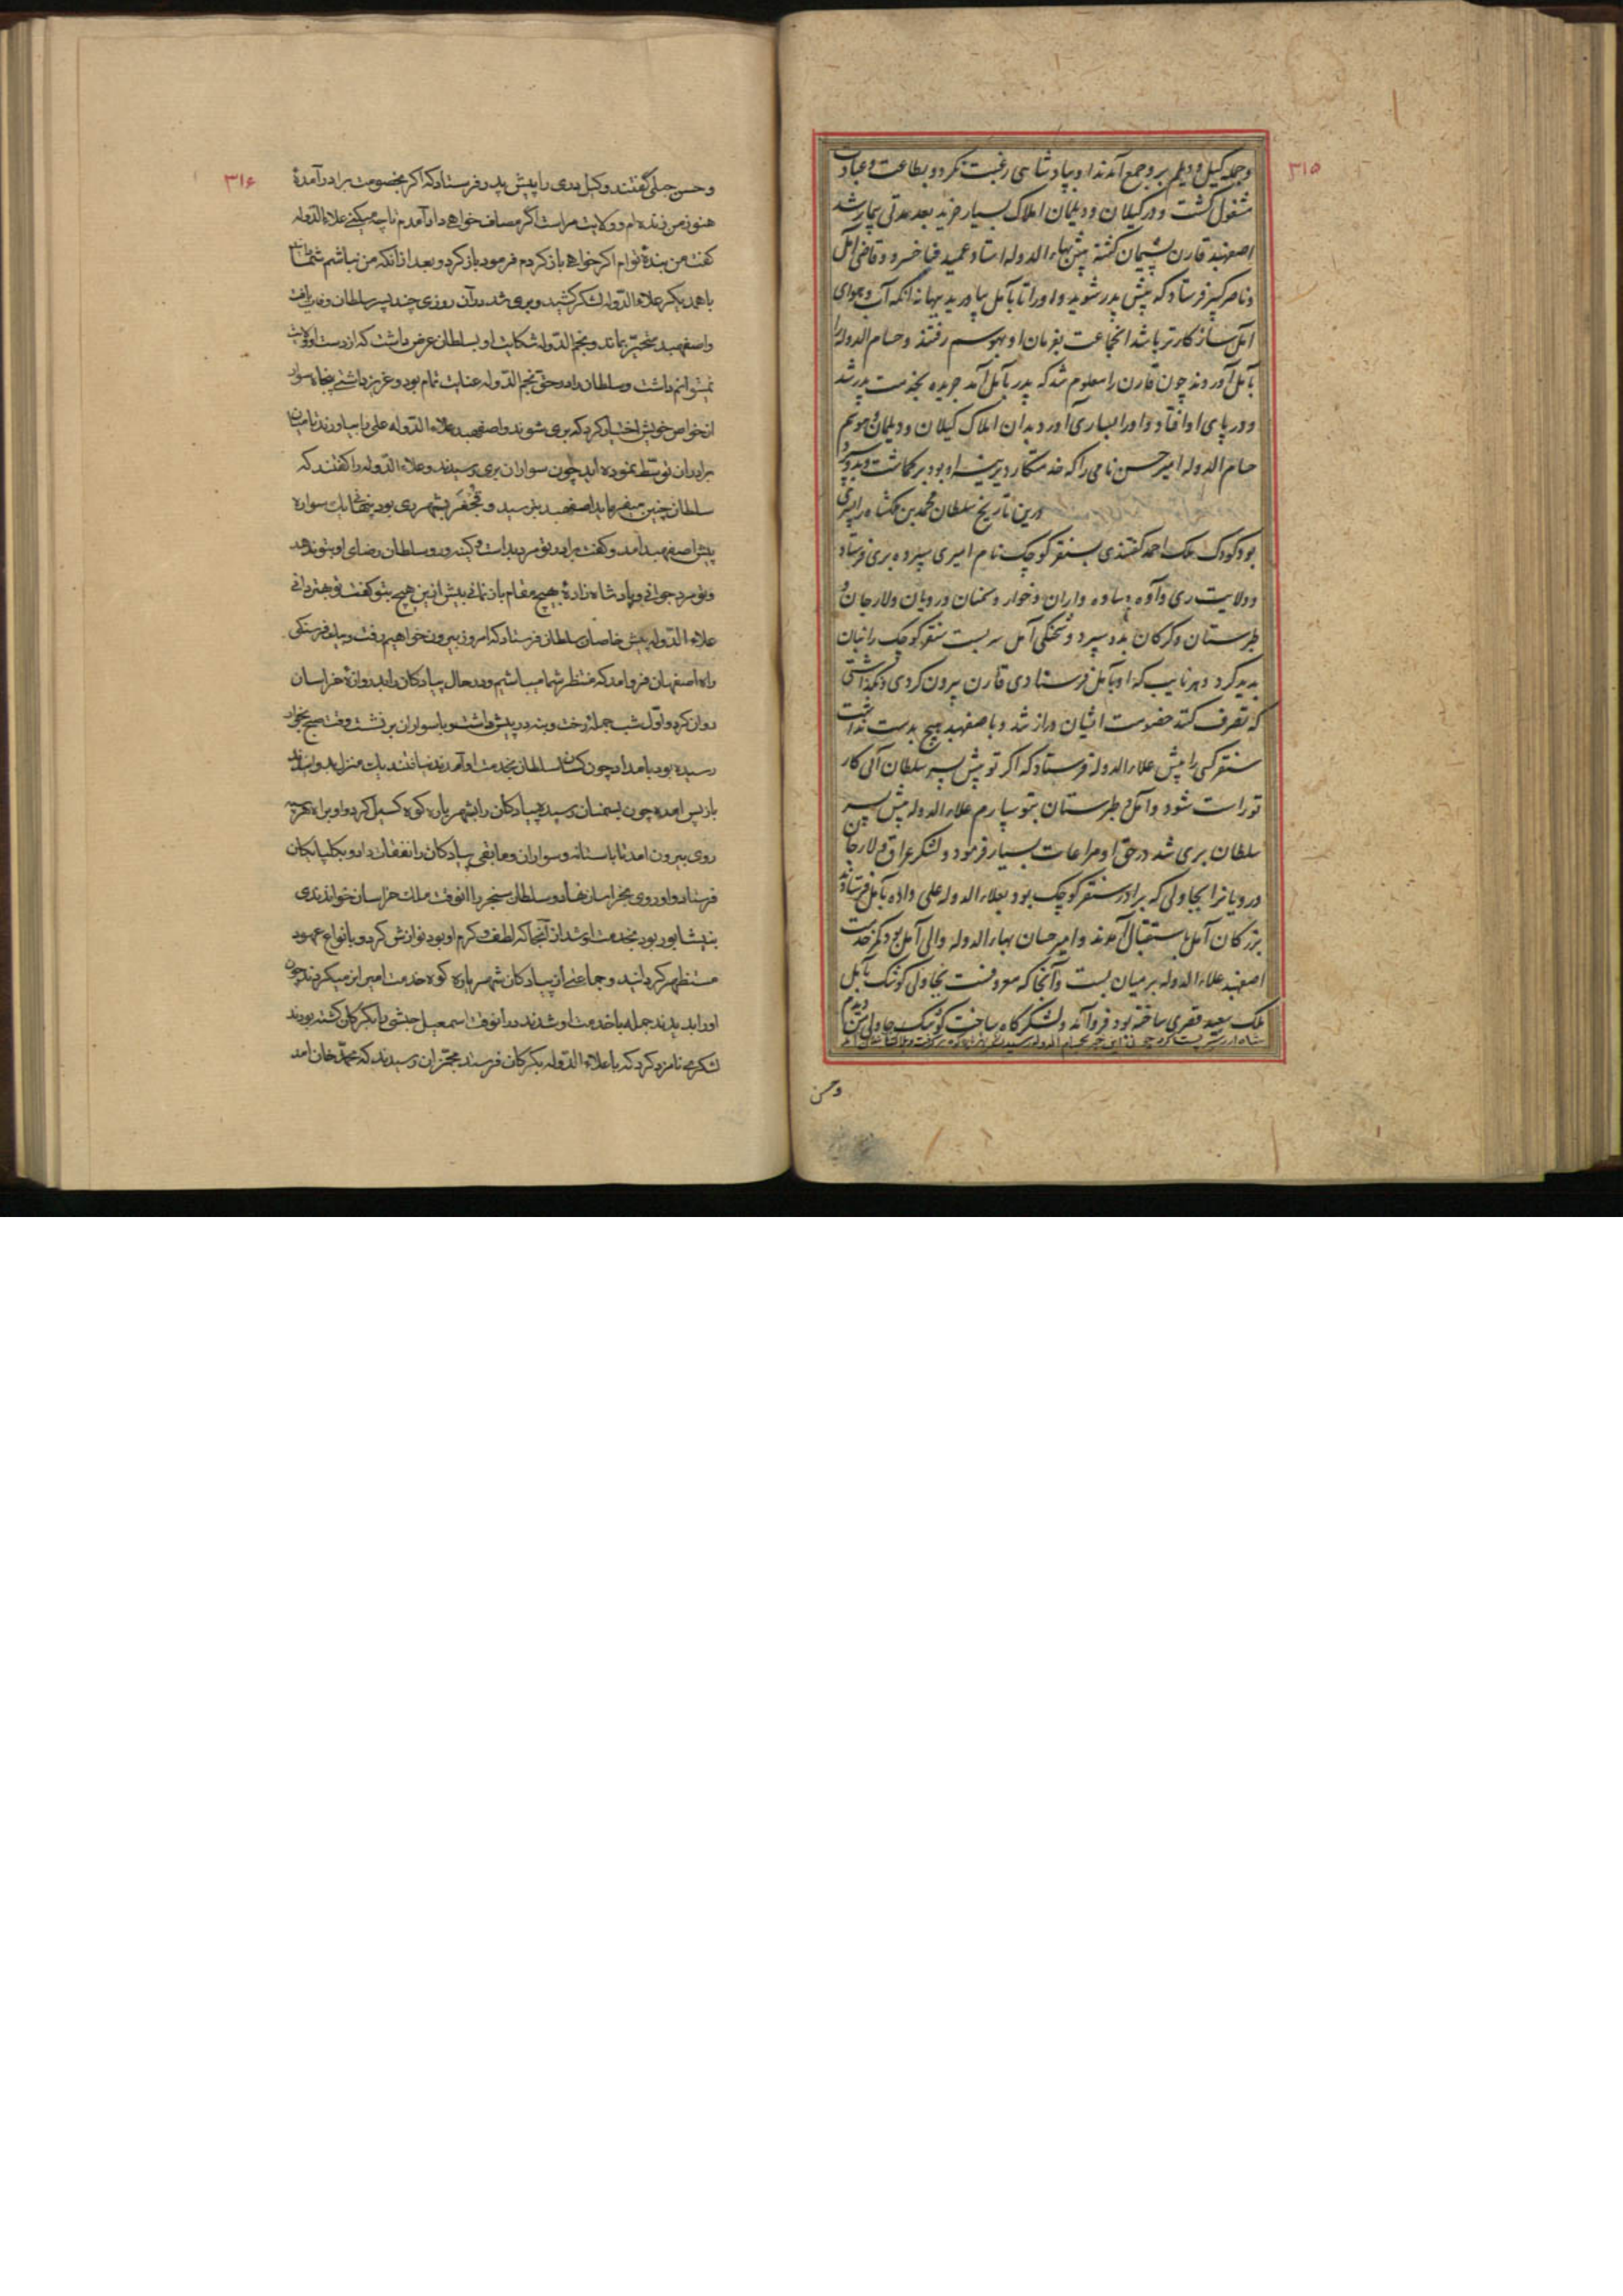 ۳۱۵
و جمله گیل و دیلم برو جمع آمدند او بپادشاهی رغبت نکرد و بطاعت و عبادت
مشغول گشت و در گیلان و دیلمان املاک بسیار خرید بعد مدتی بیمار شد
اصفهبد قارن پشیمان گشته پیش بهاء الدوله استاد عمید فناخسرو و قاضی آمل
و ناصر کبیر فرستاد که پیش پدر شوید و او را تا بآمل بیاورید بهانه آنکه آب و هوای
آمل سازگارتر باشد آنجماعت بفرمان او بهوسم رفتند و حسام الدوله را
بآمل آوردند چون قارن را معلوم شد که پدر بآمل آمد جریده بخدمت پدر شد
و در پای او افتاد و او را بساری آورد بدان املاک گیلان و دیلمان و هوسم
حسام الدوله امیر حسن نامی را که خدمتکار دیرینه او بود برگماشت
درین تاریخ سلطان محمد بن ملکشاه را پسری
بود کودک ملک احمد گفتندی بسنقر کوچک نام امیری سپرده بری فرستاد
و ولایت ری و آوه و ساوه و اران و خوار و سمنان و رویان و لارجان و
طبرستان و گرگان بدو سپرد و شحنگی آمل سنقر کوچک را نیابت
پدید کرد و هر نایب که او بآمل فرستادی قارن بیرون کردی و نگذاشتی
که تصرف کند خصومت ایشان دراز شد و با اصفهبد هیچ بدست نداشت
سنقر کسی را پیش علاء الدوله فرستاد که اگر تو پیش پسر سلطان آئی کار
تو راست شود و آمل و طبرستان بتو سپارم علاء الدوله پیش پسر
سلطان بری شد در حق او مراعات بسیار فرمود و لشکر عراق و لارجان
و رویانرا بجاولی که برادر سنقر کوچک بود بعلاء الدوله علی داده بآمل فرستادند
بزرگان آمل باستقبال آمدند و امیر حسان بهاء الدوله والی آمل بود کمر خدمت
اصفهبد علاء الدوله بر میان بست و آنجا که معروفست بجاولی کوشک بآمل
ملک سعید قصری ساخته بود فرو آمد و لشکرگاه ساخت کوشک جاولی
وحسن
۳۱۶
و حسن جبلی گفتند وکیل دری را پیش پدر فرستاد که اگر بخصومت برادر آمدهٔ
هنوز من زنده ام و ولایت مراست اگر مصاف خواهی داد آمدم تا چه میکنی علاء الدوله
گفت من بندهٔ توام اگر خواهی بازگردم فرمود بازگرد و بعد از آنکه من نباشم شما
با همدیگر علاء الدوله لشکر کشید و بری شد در آن روزی چند پسر سلطان وفات یافت
و اصفهبد متحیر بماند و نجم الدوله شکایت او بسلطان عرض داشت که از دست او ولایت
نمیتوانم داشت و سلطان را در حق نجم الدوله عنایت تمام بود و عزیز داشتی پنجاه سوار
از خواص خویش اختیار کرد که بری شوند و اصفهبد علاء الدوله علی را بیاورند تا میان
برادران توسط نموده آید چون سواران بری رسیدند و علاء الدوله را گفتند که
سلطان چنین میفرماید اصفهبد بترسید و بشهر ری بود پنهانی یک سواره
پیش اصفهبد آمد و گفت برادر تو مرد بد است و کینه ور و سلطان رضای او بتو ندهد
و تو مرد جوانی و پادشاه زادهٔ بهیچ مقام باز نمانی بیش ازین هیچ بتو نگفت تو بهتر دانی
علاء الدوله پیش خاصان سلطان فرستاد که امروز بیرون خواهیم رفت و بیک فرسنگی
راه اصفهان فرو آمد که منتظر شما میباشیم و در حال پیادگان را بدروازهٔ خراسان
روان کرد و اول شب جمله رخت و بنه در پیش داشت و با سواران بر نشست وقت صبح بخوار
رسیده بود بامداد چون کسان سلطان بخدمت او آمدند نیافتند یک منزل بدوانیدند
باز پس آمده چون بسمنان رسید پیادگان را بشهریاره کوه گسیل کرد و او براه
روی بیرون آمد تا باستانه و سواران و مابقی پیادگان را نفقات داد و بگلپایگان
فرستاد و او روی بخراسان نهاد و سلطان سنجر را آنوقت ملک خراسان خواندندی
بنیشابور بود بخدمت او شد از آنجا که لطف و کرم او بود نوازش کرد و بانواع عهود
مستظهر گردانید و جماعتی از پیادگان شهریاره کوه خدمت امیر انر میکردند چون
او را بدیدند جمله با خدمت او شدند در آنوقت اسمعیل حبشی را بگرگان کشته بودند
لشکری نامزد کرد که با علاء الدوله بگرگان فرستد مخبران رسیدند که محمد خان آمد